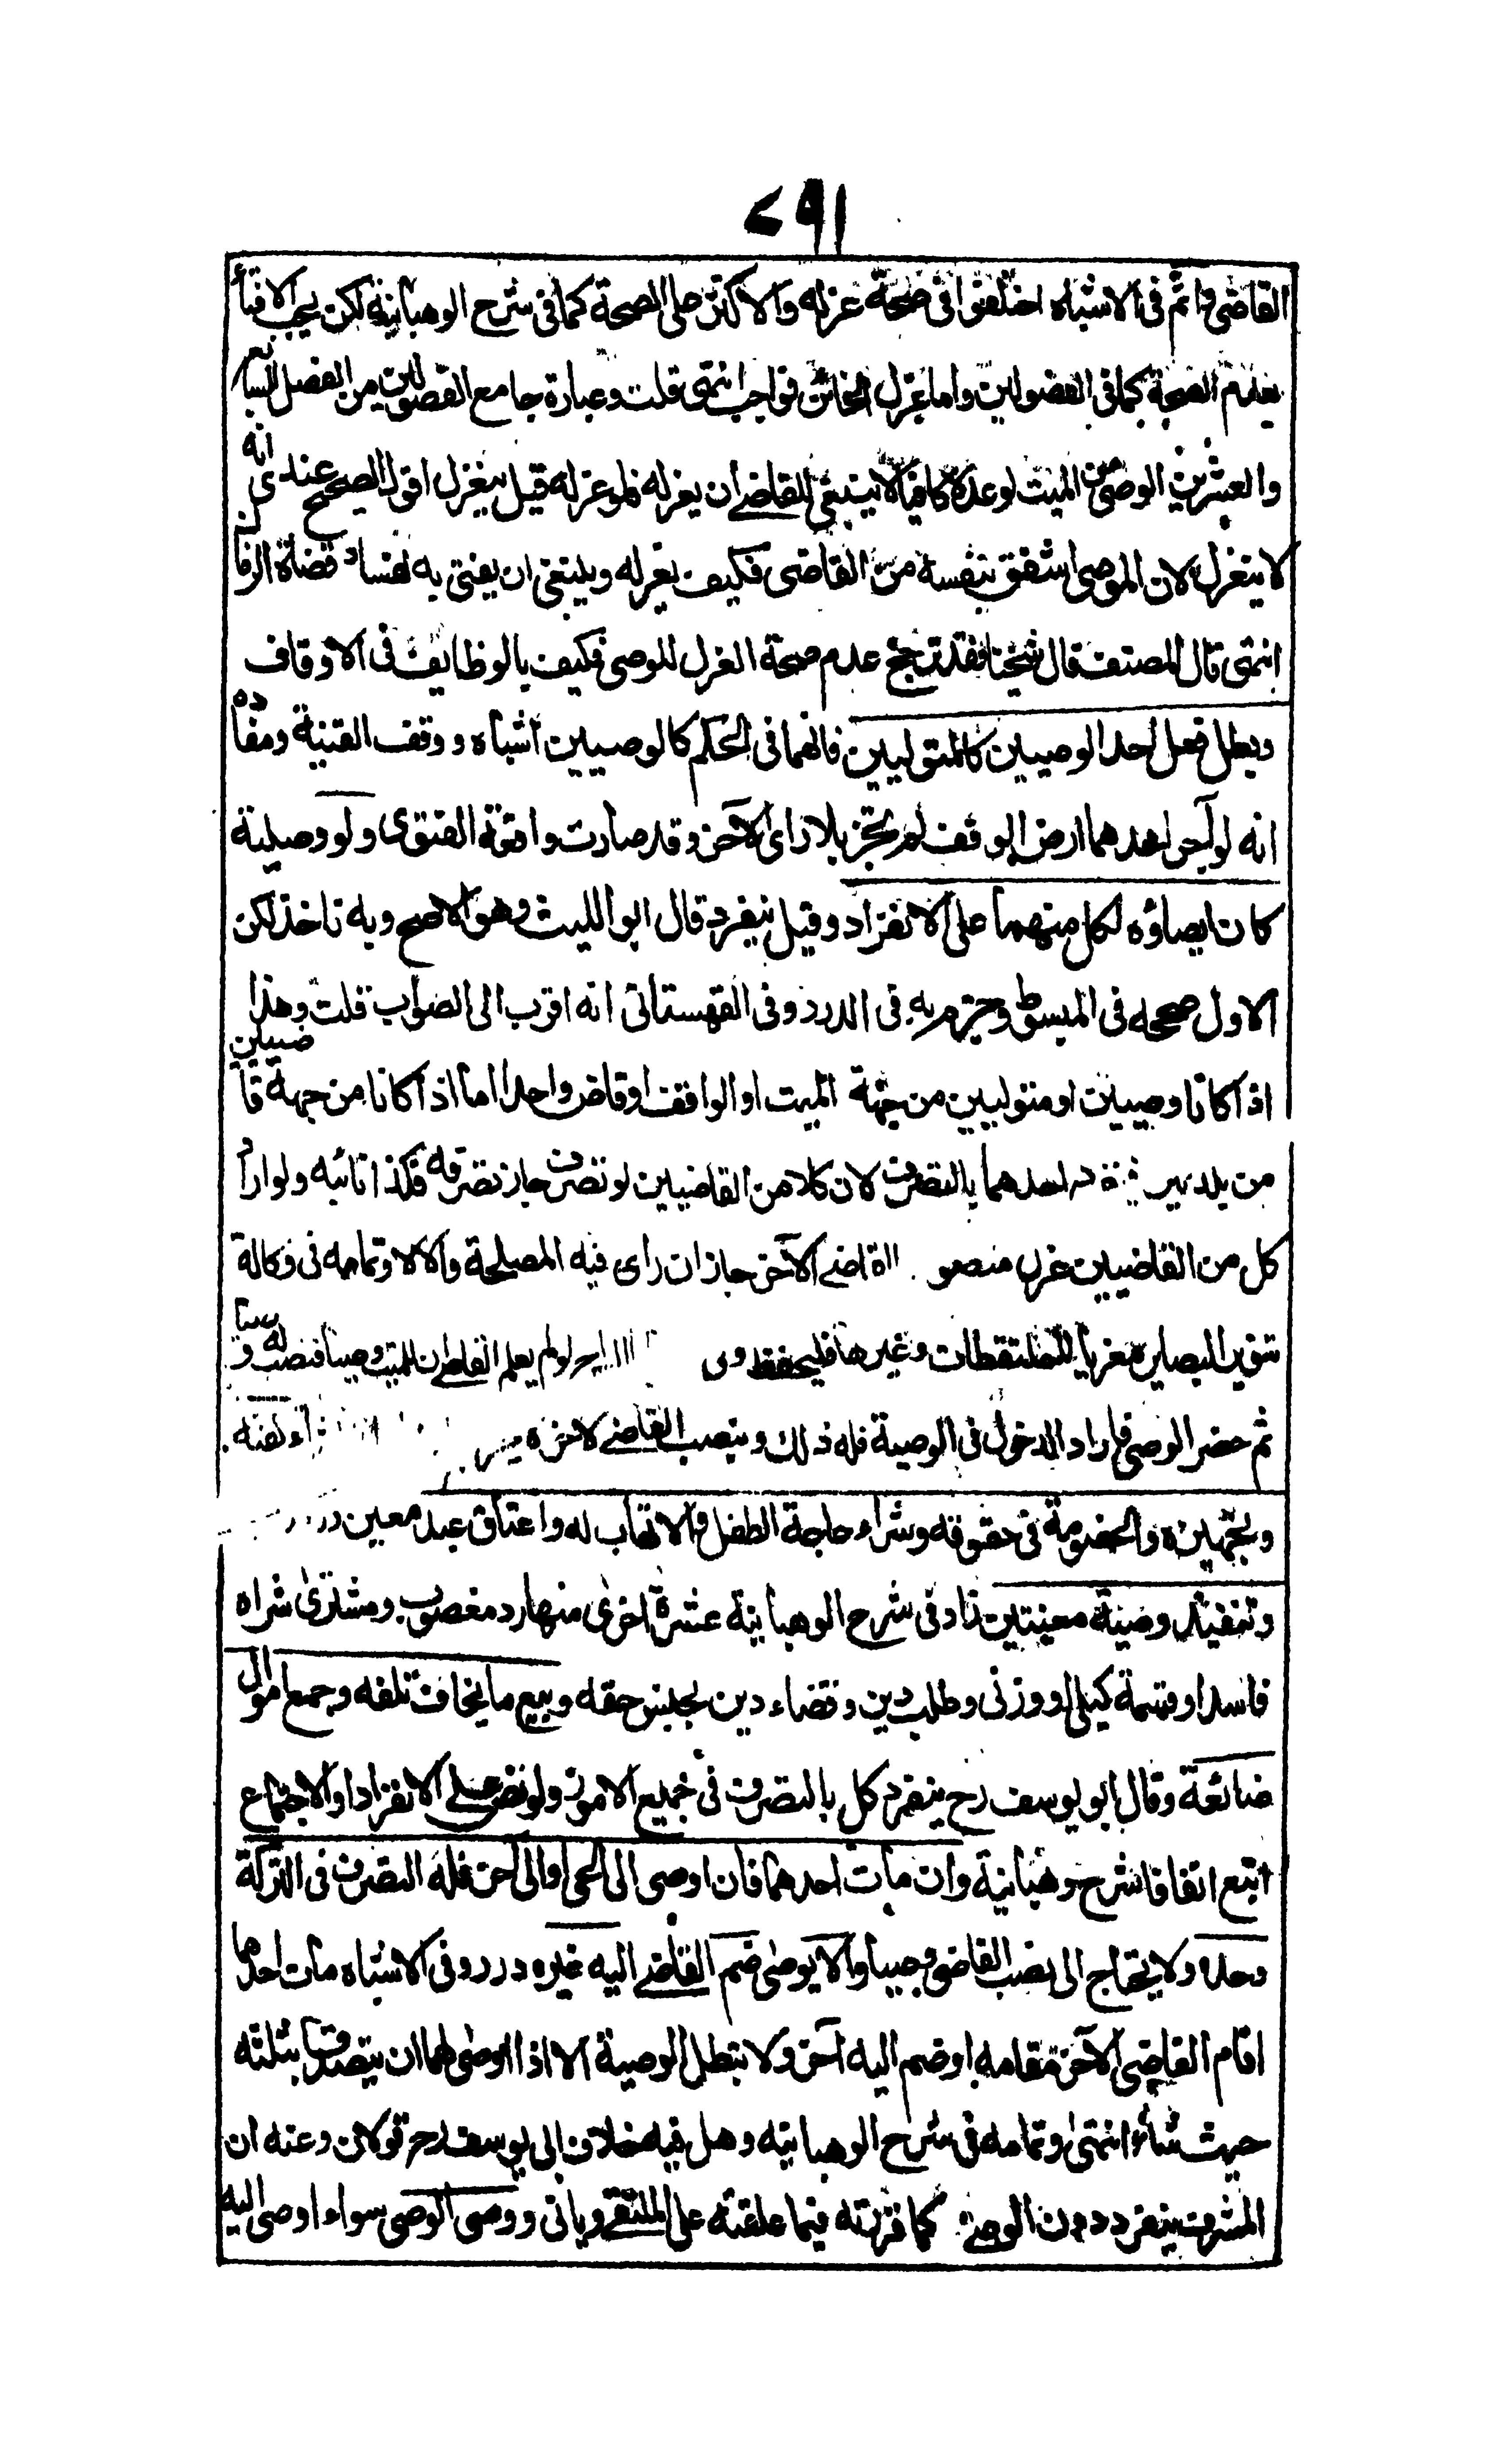 ٢٩١
القاضى واثم فى الاشباه اختلفوا فى صحة عزله والاكثر على الصحة كما فى شرح الوهبانية لكن يجب الافتأ
بعدم الصحة كما فى الفصولين واما عزل الخائن فواجب انتهى قلت وعبارة جامع الفصولين من الفصل السابع
والعشرين الوصى من الميت لو عدلا كافيا لا ينبغى للقاضى ان يعزله فلو عزله قيل ينعزل اقول الصحيح عندى انه
لا ينعزل لان الموصى اشفق بنفسه من القاضى فكيف يعزله وينبغى ان يفتى به لفساد قضاة الزمان
انتهى قال المصنف قال شيخنا فقد ترجح عدم صحة العزل للوصى فكيف بالوظايف فى الاوقاف
وبطل فعل احد الوصيين كالمتوليين فانهما فى الحكم كالوصيين اشباه ووقف القنية ومفاده
انه لو آجر احدهما ارض الوقف لم تجز بلا راى الآخر وقد صارت واقعة الفتوى ولو وصلية
كان ايصاؤه لكل منهما على الانفراد وقيل ينفرد قال ابو الليث وهو الاصح وبه ناخذ لكن
الاول صححه فى المبسوط وجزم به فى الدرر وفى القهستانى انه اقرب الى الصواب قلت وهذا
اذا كانا وصيين او متوليين من جهة الميت او الواقف او قاض واحد اما اذا كانا من جهة قاضيين
من بلدتين احدهما بالتصرف لان كلا من القاضيين لو تصرف جاز تصرفه فكذا نائبه ولو اراد
كل من القاضيين عزل منصوب القاضى الآخر جاز ان راى فيه المصلحة والا لا وتمامه فى وكالة
تنوير البصاير معزيا للملتقطات وغيرها فليحفظ وفى لو لم يعلم القاضى ان للميت وصيا فنصب له وصيا
ثم حضر الوصى فاراد الدخول فى الوصية فله ذلك ونصب القاضى الآخر
وتجهيزه والخصومة فى حقوقه وشراء حاجة الطفل والاتهاب له واعتاق عبد معين
وتنفيذ وصية معينتين زاد فى شرح الوهبانية عشرة اخرى منها رد مغصوب ومشترى شراه
فاسدا وقسمة كيلى او وزنى وطلب دين وقضاء دين بجنس حقه وبيع ما يخاف تلفه وجمع اموال
ضائعة وقال ابو يوسف رح ينفرد كل بالتصرف فى جميع الامور ولو نص على الانفراد او الاجتماع
اتبع اتفاقا شرح وهبانية وان مات احدهما فان اوصى الى الحى او الى آخر فله التصرف فى التركة
وحده ولا يحتاج الى نصب القاضى وصيا والا يوصى ضم القاضى اليه غيره درر وفى الاشباه مات احدهما
اقام القاضى الآخر مقامه او ضم اليه آخر ولا تبطل الوصية الا اذا اوصى لهما ان يتصدقا بثلثه
حيث شاآ انتهى وتمامه فى شرح الوهبانية وهل فيه خلاف ابى يوسف رح قولان وعنه ان
المشرف ينفرد دون الوصى كما قررته فيما علقته على الملتقى وياتى ووصى الوصى سواء اوصى اليه